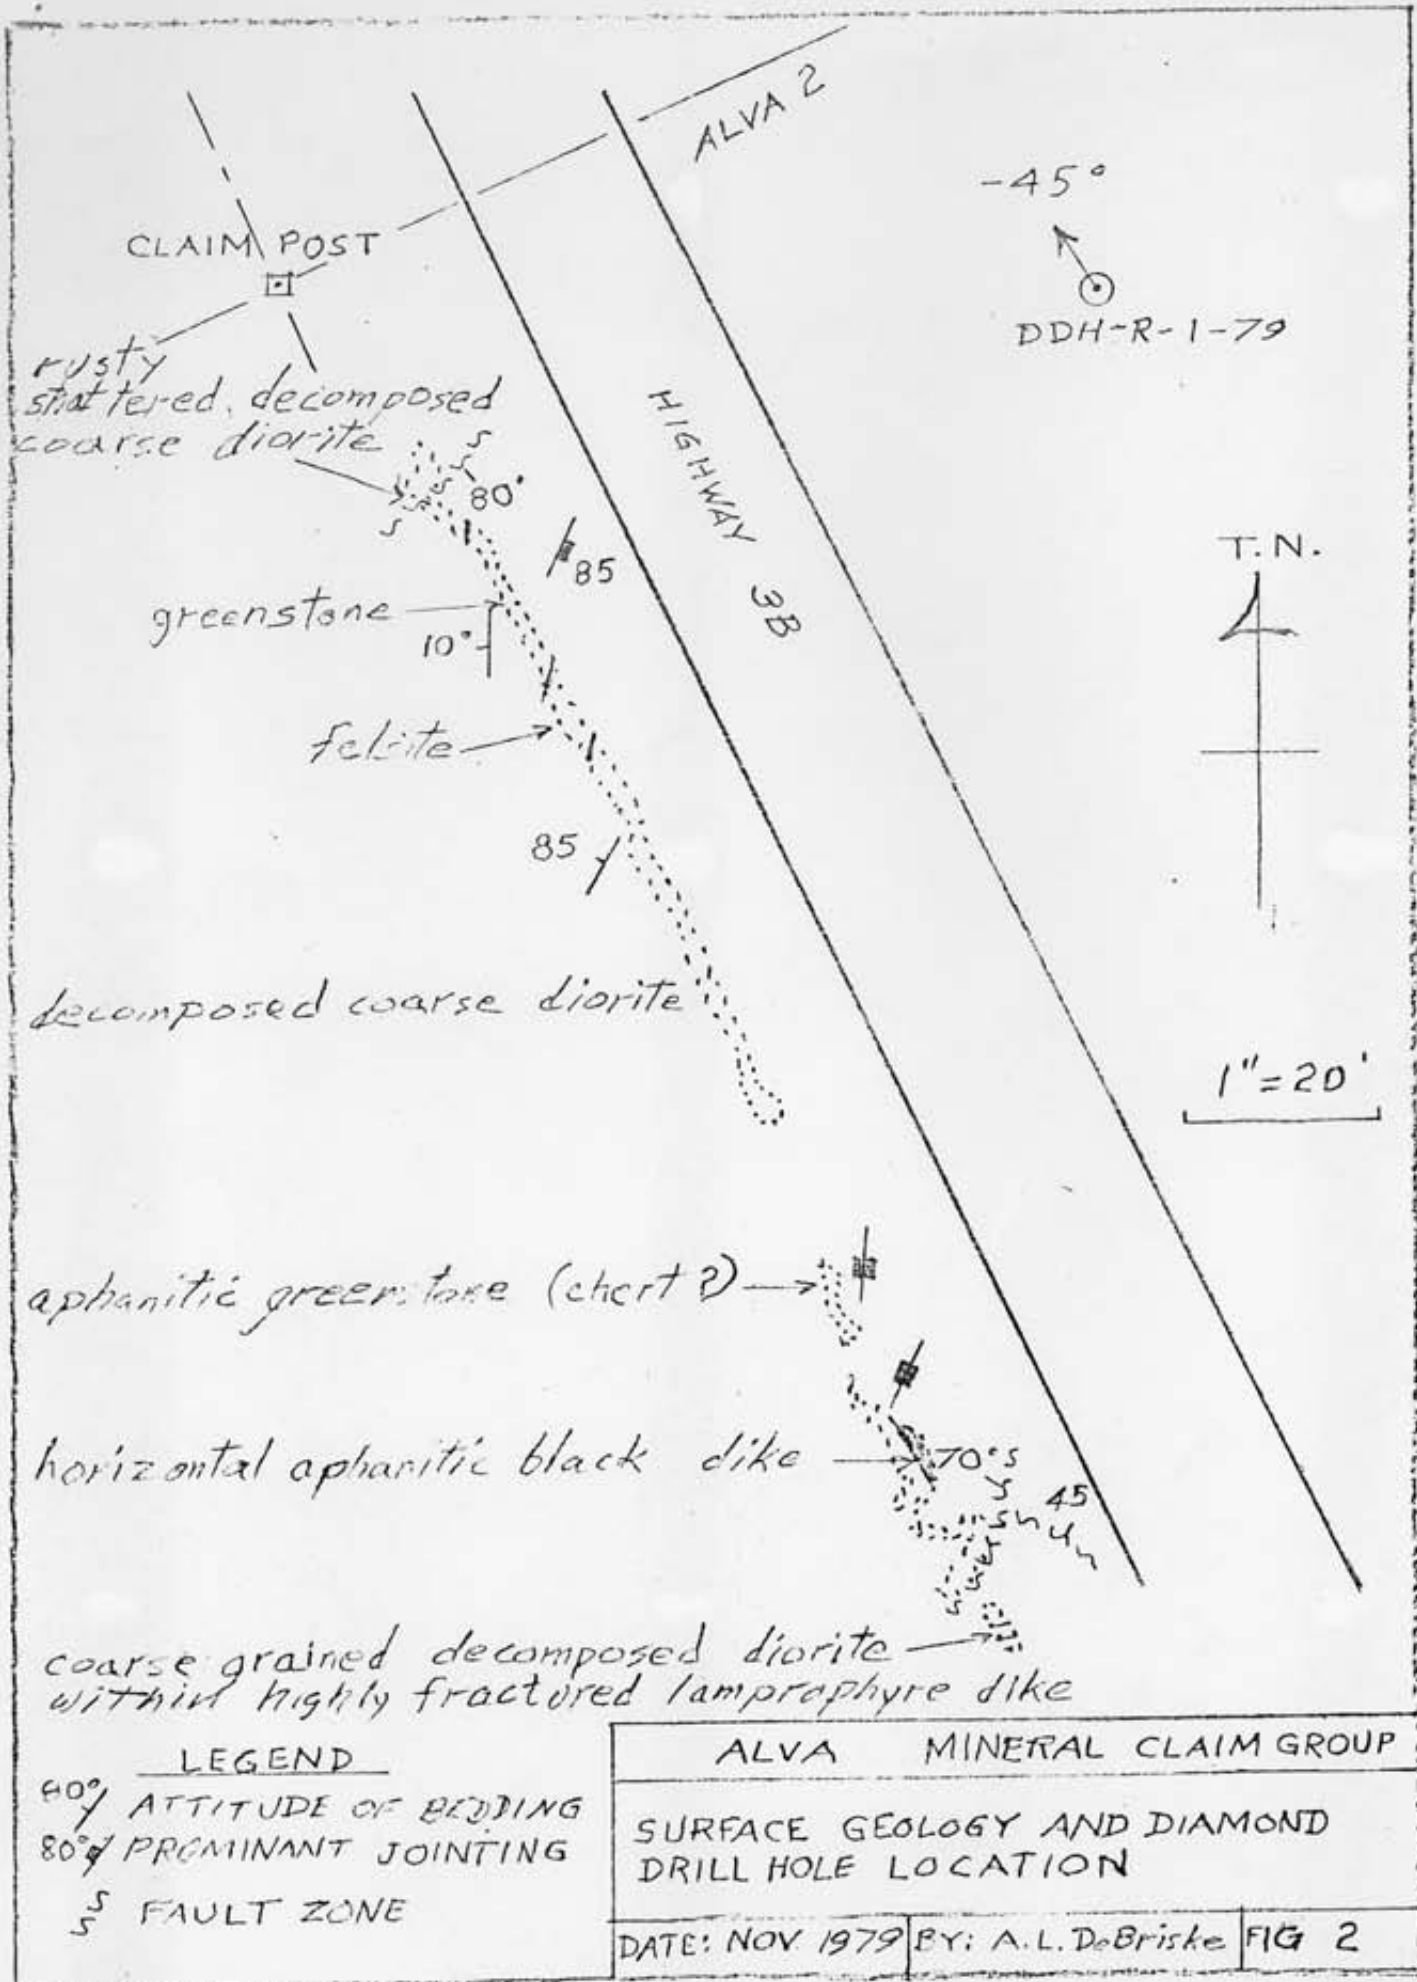 ALVA 2
-45°
CLAIM POST
DDH-R-1-79
rusty
shattered, decomposed
coarse diorite
80°
HIGHWAY 3B
85
T.N.
greenstone
10°
felsite
85
decomposed coarse diorite
1"=20'
aphanitic greenstone (chert?)
horizontal aphanitic black dike
70°
45
coarse grained decomposed diorite
within highly fractured lamprophyre dike
LEGEND
80° ATTITUDE OF BEDDING
80° PROMINANT JOINTING
FAULT ZONE
ALVA MINERAL CLAIM GROUP
SURFACE GEOLOGY AND DIAMOND
DRILL HOLE LOCATION
DATE: NOV 1979 BY: A.L. DeBriske FIG 2